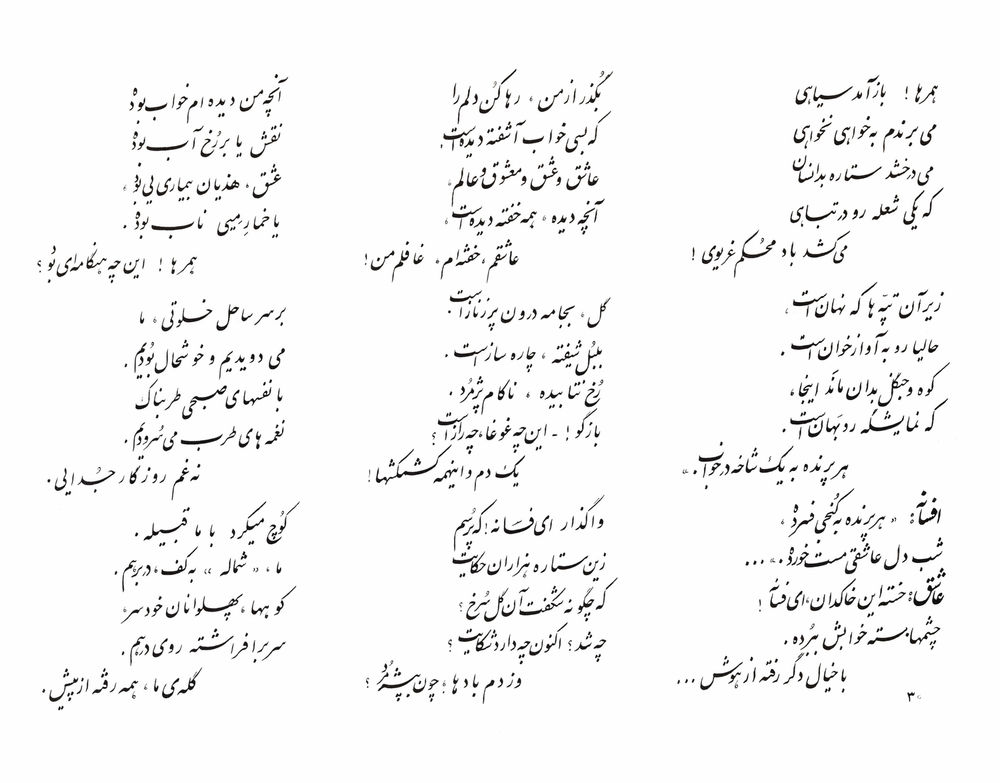 همرها! بازآمد سیاهی
می‌برندم به‌خواهی نخواهی
می‌درخشد ستاره بدانسان
که یکی شعله رو در تباهی
می‌کشد باد محکم غریوی!
زیر آن تپّه‌ها که نهان است،
حالیا روبه آواز خوان است.
کوه و جنگل بدان ماند اینجا،
که نمایشگه روبهان است.
هر پرنده به یک شاخه در خواب.»
افسانه: «هر پرنده به کُنجی فسرده،
شب دل عاشقی مست خورده.»...
عاشق: خسته این خاکدان، ای فسانه!
چشمها بسته خوابش ببرده.
با خیال دگر رفته از هوش...
بگذر از من، رها کن دلم را
که بسی خواب آشفته دیده است،
عاشق و عشق و معشوق و عالم،
آنچه دیده، همه خفته دیده است،
عاشقم، خفته‌ام، غافلم من!
گل، بجامه درون پر ز ناز است.
بلبل شیفته، چاره ساز است.
رُخ نتابیده، ناکام پژمُرد.
بازگو! - این چه غوغا، چه راز است؟
یک دم و اینهمه کشمکشها!
واگذار ای فسانه! که پرسم
زین ستاره هزاران حکایت
که چگونه شکفت آن گل سُرخ؟
چه شد؟ اکنون چه دارد شکایت؟
وز دم بادها، چون بپژمُرد؟
آنچه من دیده‌ام خواب بوده
نقش یا بر رُخ آب بوده
عشق، هذیان بیماری‌یی بود،
یا خمار مِیی ناب بوده.
همرها! این چه هنگامه‌ای بود؟
بر سر ساحل خلوتی، ما
می‌دویدیم و خوشحال بودیم.
با نفسهای صبحی طربناک
نغمه‌های طرب می‌سرودیم.
نه غم روزگار جدایی.
کوچ میکرد با ما قبیله.
ما، «شماله» به کف، در برهم.
کوهها، پهلوانان خودسر،
سر برافراشته روی درهم.
گله‌ی ما، همه رفته از پیش.
۳۰